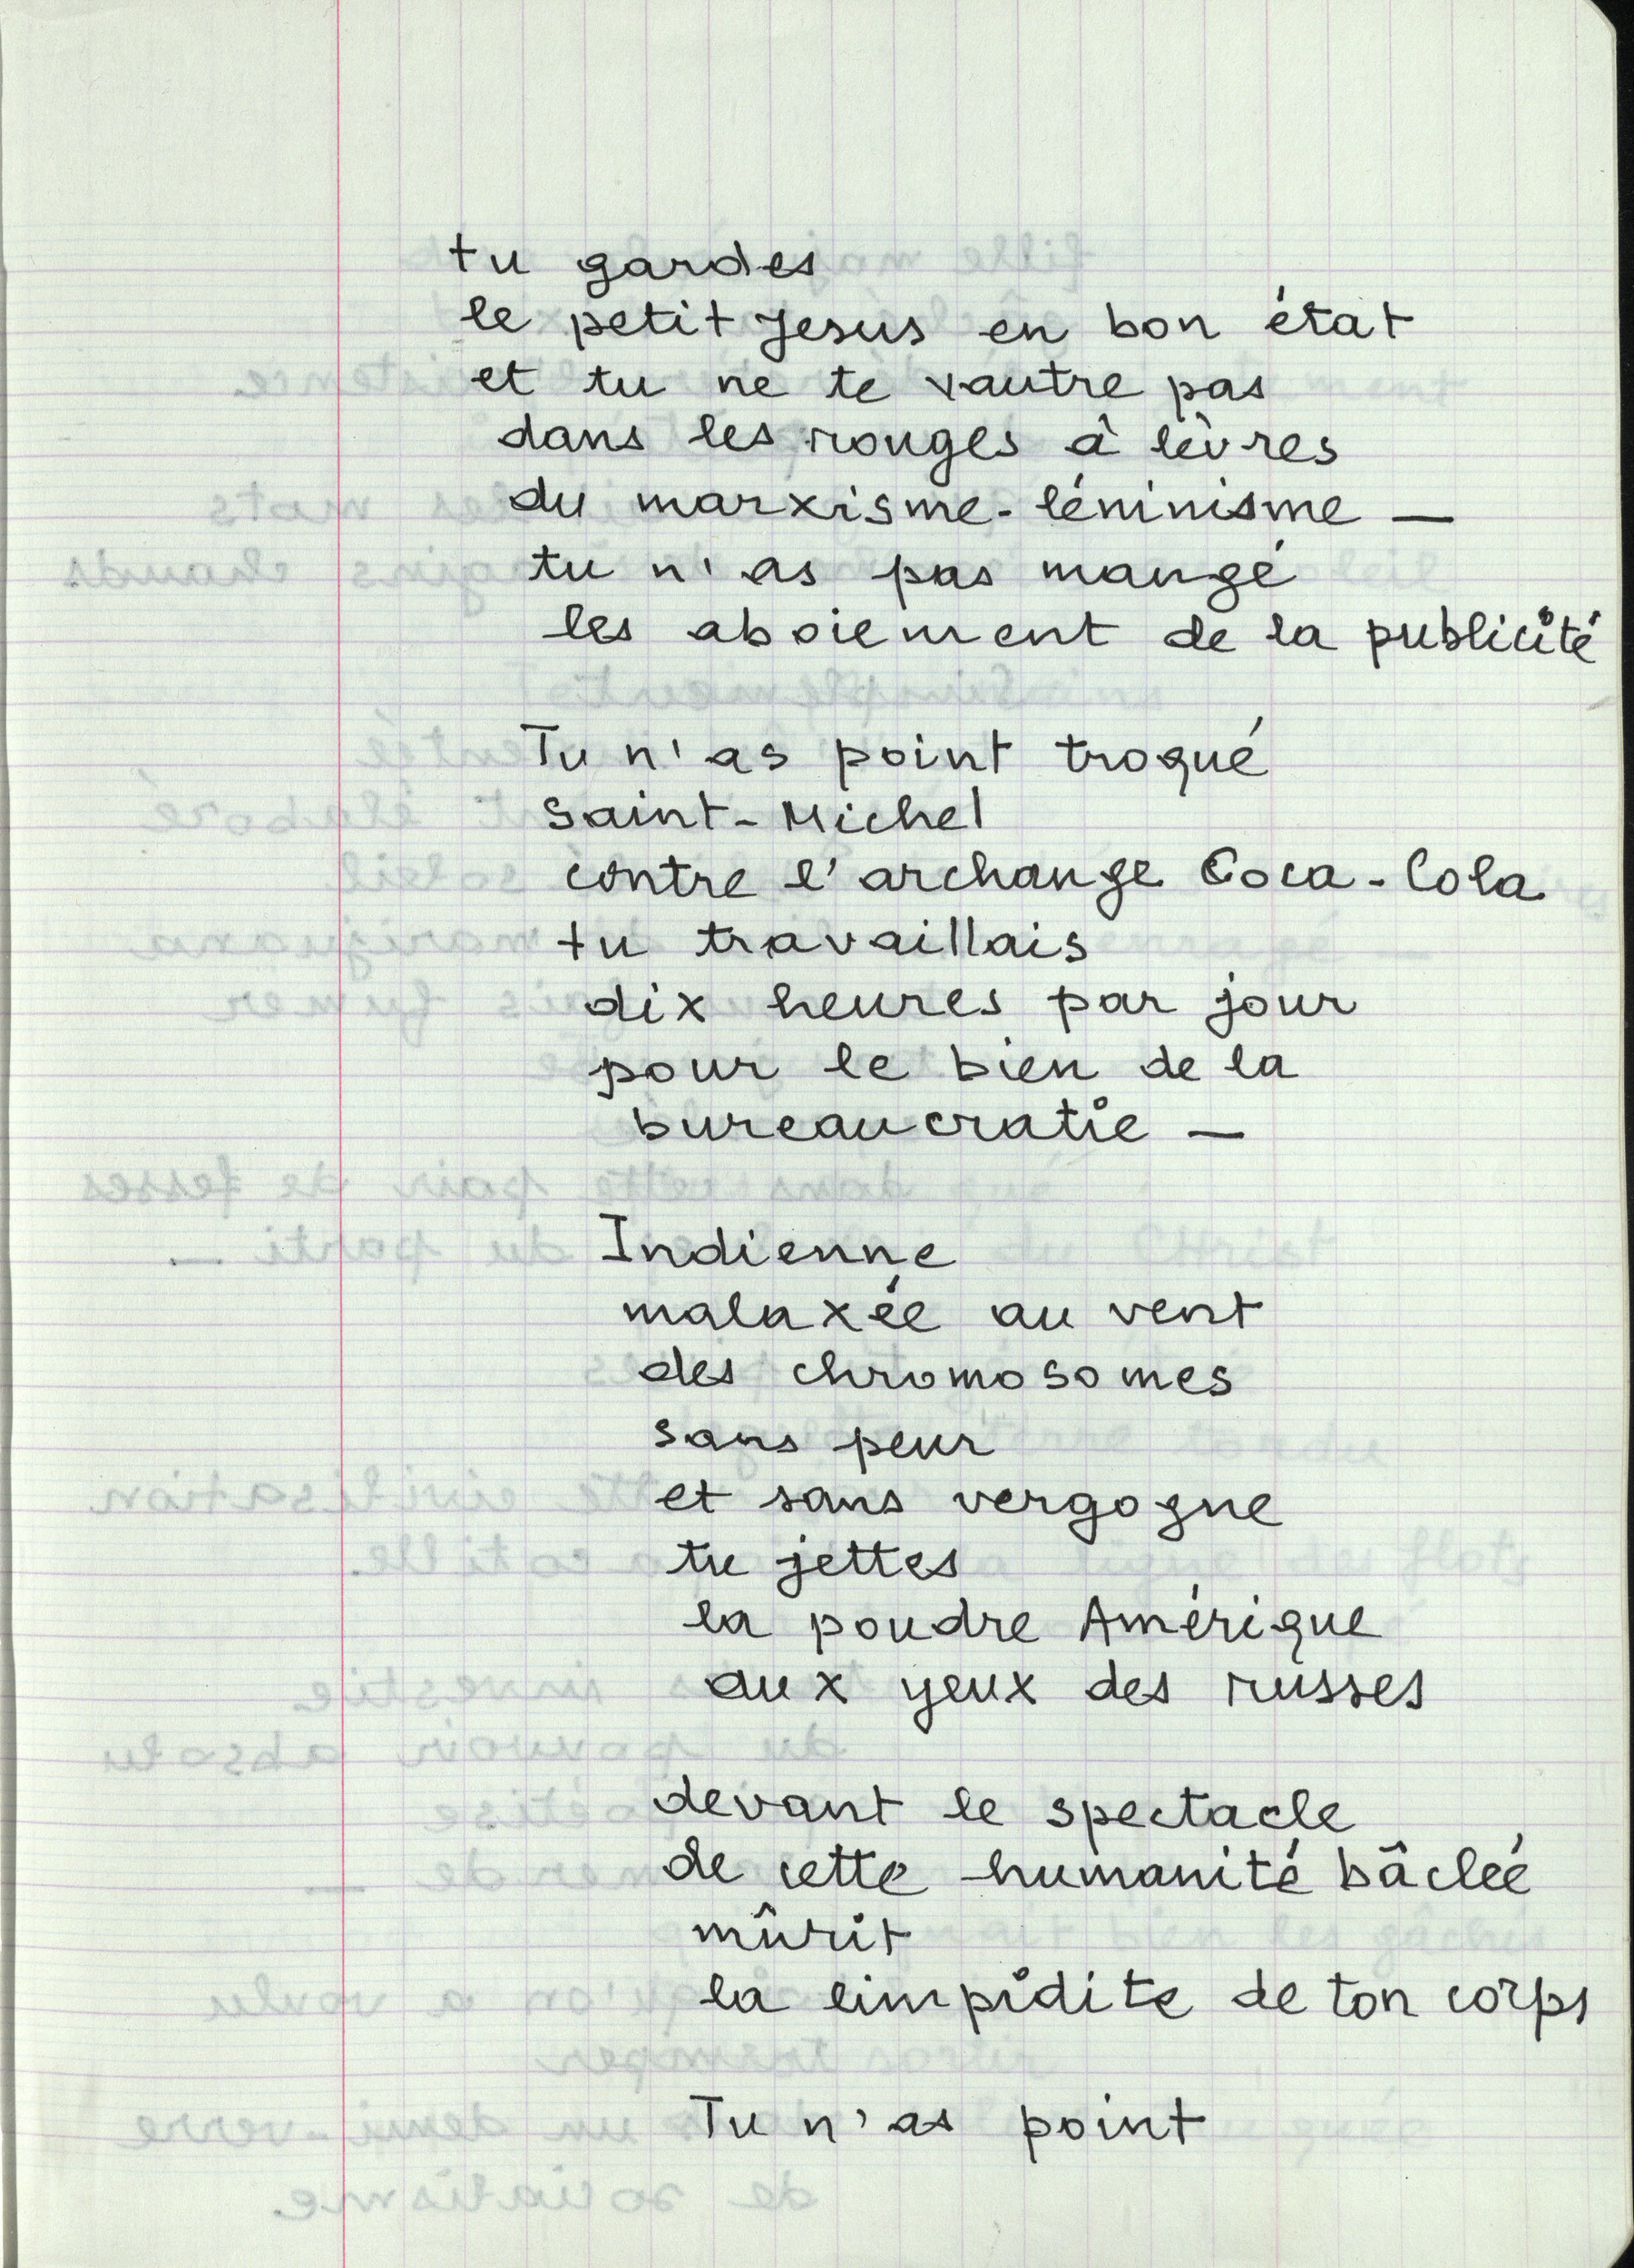 tu gardes
le petit Jesus en bon état
et tu ne te vautre pas
dans les rouges à lèvres
du marxisme-léninisme —
tu n'as pas mangé
les aboiement de la publicité
Tu n'as point troqué
Saint-Michel
contre l'archange Coca-Cola
tu travaillais
dix heures par jour
pour le bien de la
bureaucratie —
Indienne
malaxée au vent
des chromosomes
sans peur
et sans vergogne
tu jettes
la poudre Amérique
aux yeux des russes
devant le spectacle
de cette humanité bâclée
mûrit
la limpidite de ton corps
Tu n'as point